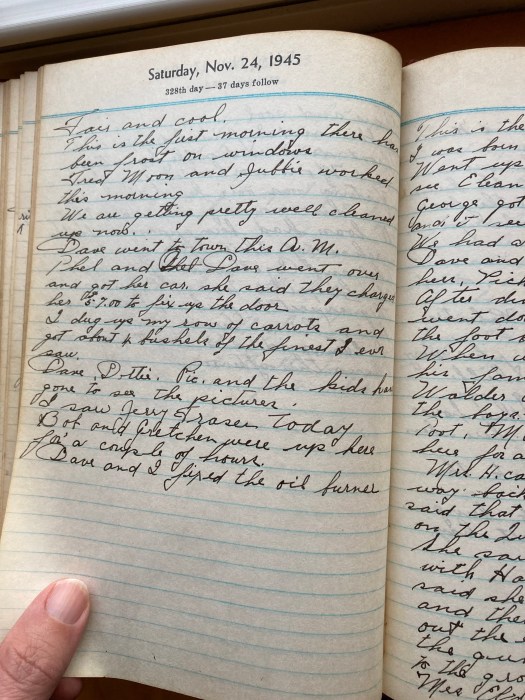 Saturday, Nov. 24, 1945
328th day—37 days follow
Fair and cool.
This is the first morning there has
been frost on windows
Fred Moon and Jubbie worked
this morning
We are getting pretty well cleaned
up now.
Dave went to town this A. M.
Phel and Dave went over
and got her car. she said they charged
her $5.00 to fix up the door
I dug up my row of carrots and
got about 4 bushels of the finest I ever
saw.
Dave, Dottie, Pic, and the kids have
gone to see the pictures.
I saw Jerry Fraser Today
Bob and Gretchen were up here
for a couple of hours.
Dave and I fixed the oil burner
This is the
I was born
Went up
see Elean
George got
and I see
We had a
Dave and
here, Pic
After du
went do
the foot
When
his fam
Walder
the boys.
Poot, M
here for a
Mrs. H. ca
way back
said that
on the Ju
She saw
with Ha
said she
and the
out the
the gu
to the gro
Mrs